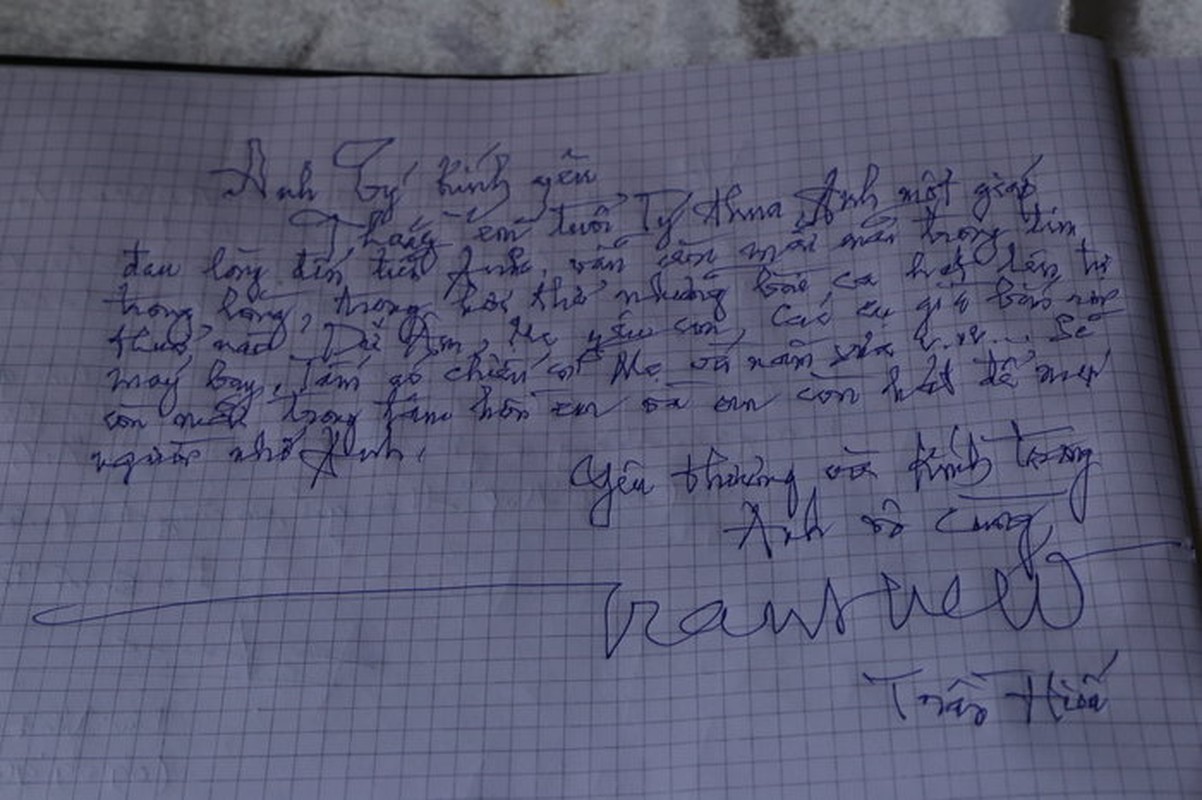 Anh Tý kính yêu
Thằng em tuổi Tý thua Anh một giáp
đau lòng đến tiễn Anh. vẫn còn mãi mãi trong tim,
trong lòng, trong hơi thở những bài ca hát lên từ
thuở nào Dư Âm, Mẹ yêu con, Các cụ già bắn rơi
máy bay, Tấm áo chiến sĩ Mẹ vá năm xưa v.v... Sẽ
còn mãi trong tâm hồn em và em còn hát để mọi
người nhớ Anh.
Yêu thương và kính trọng
Anh vô cùng
Trần Hiếu